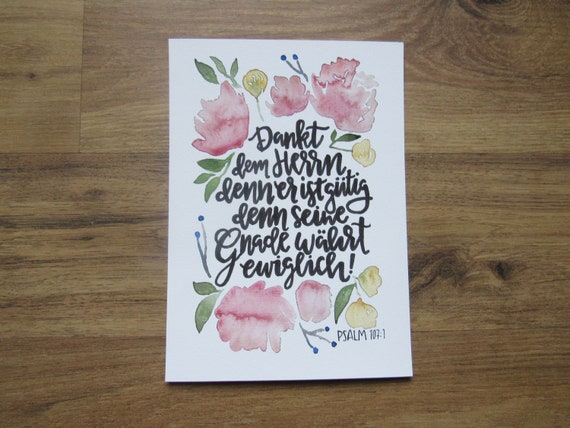 Dankt
dem Herrn
denn er ist gütig
denn seine
Gnade währt
ewiglich!
PSALM 107:1